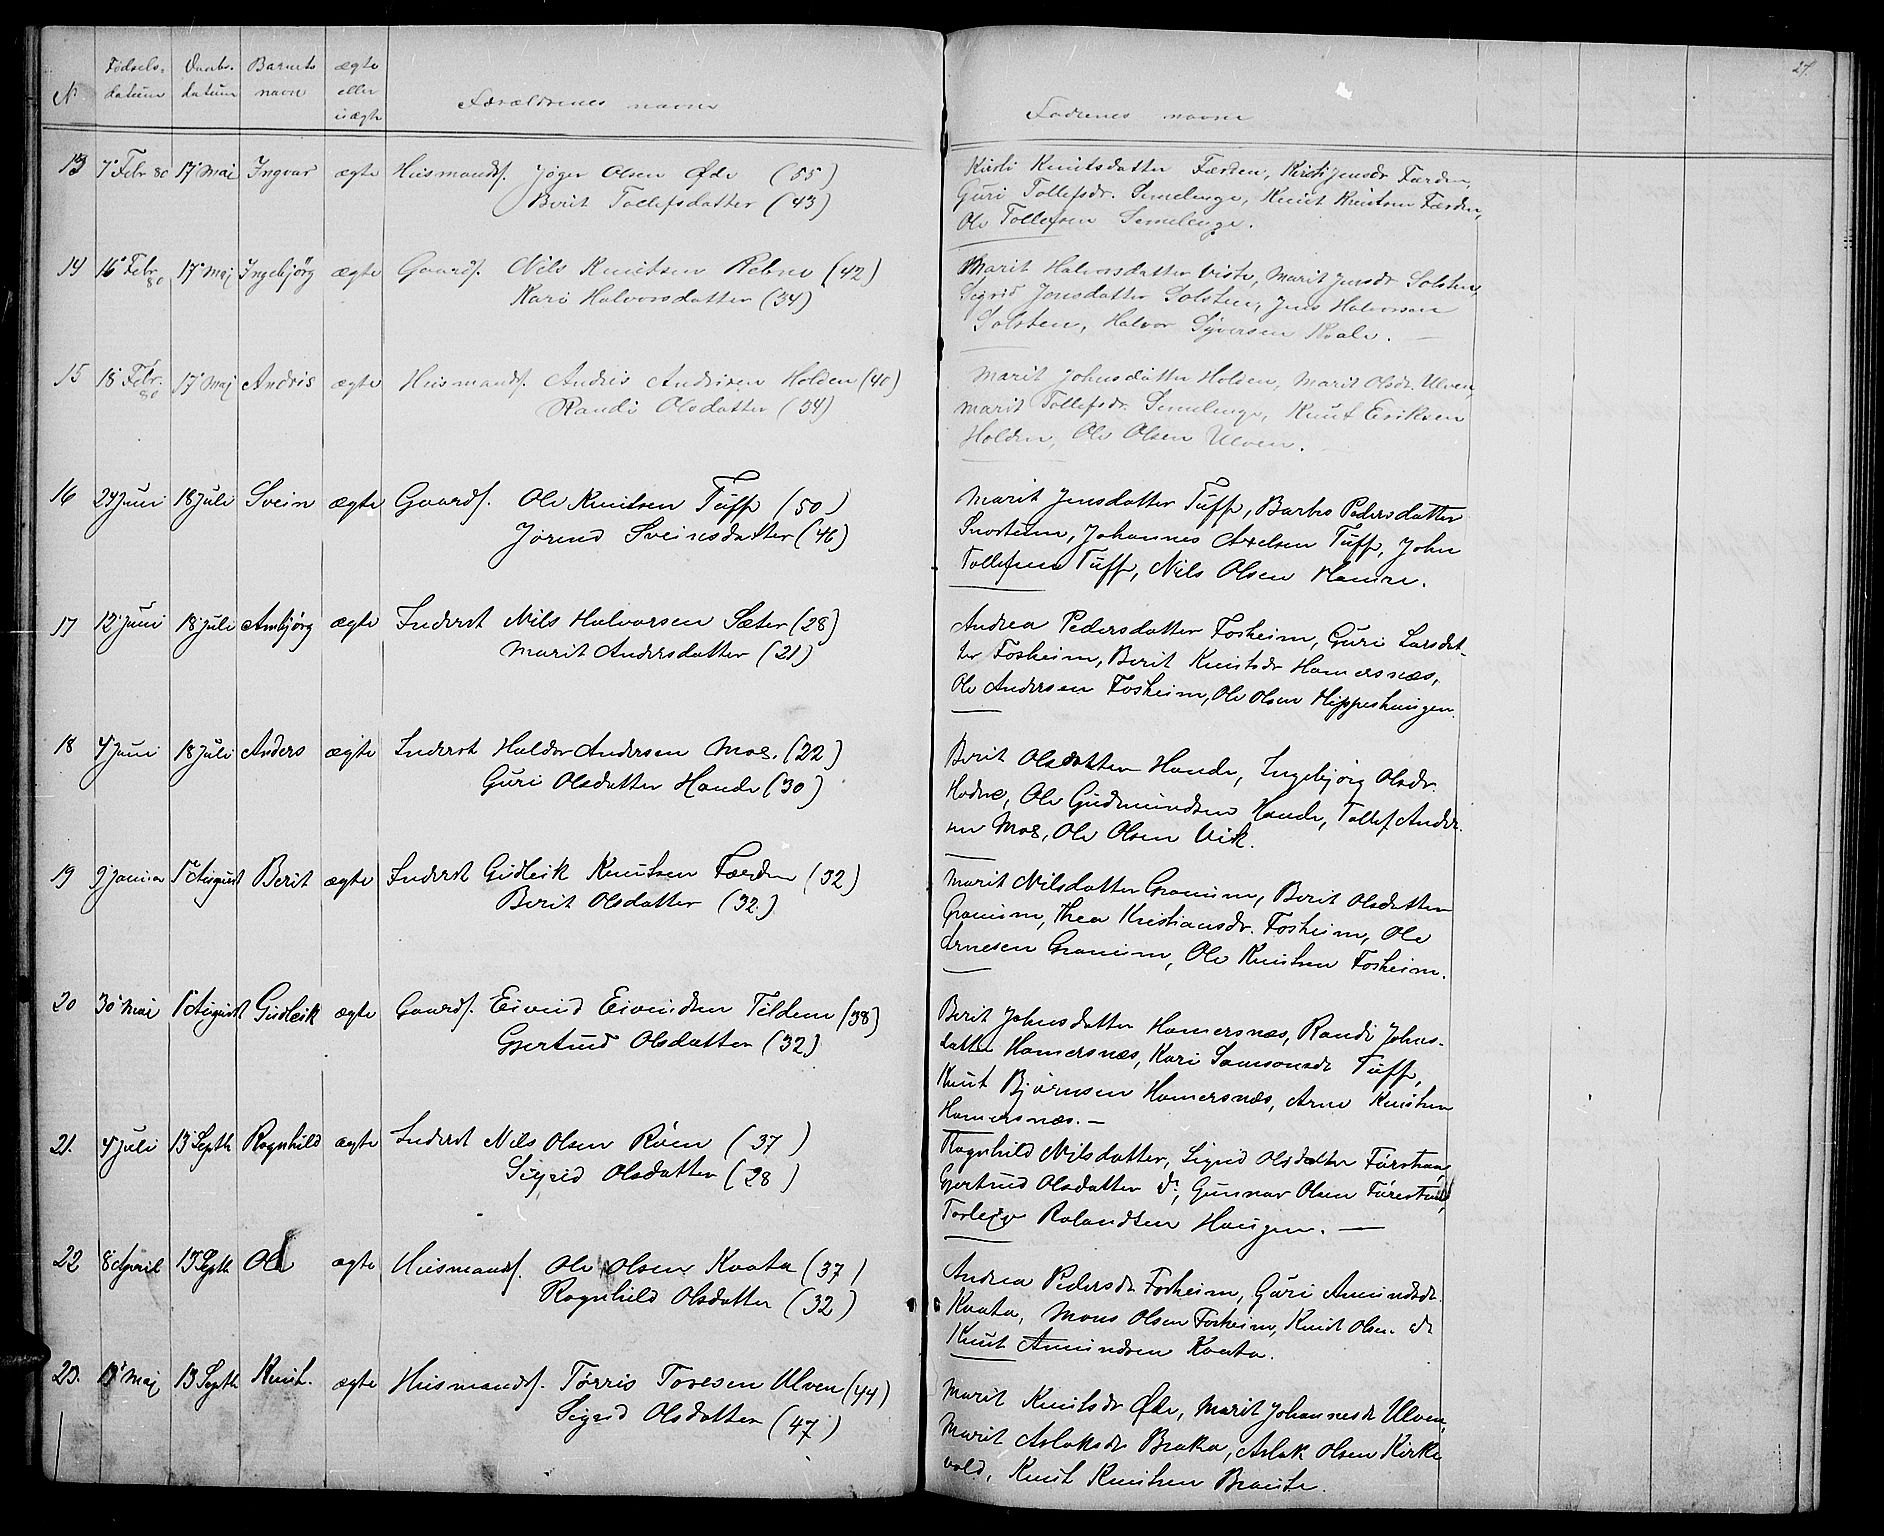 27.
N Fødsels-datum Daabs-datum Barnets navn ægte eller uægte Forældrenes navne Faddernes navne
13 7' Febr 80 17' Mai Ingvar ægte Husmandsf. Jøger Olsen Øde (55)
Berit Tollefsdatter (43)
Kirsti Knutsdatter Færden, Kirsti Jensdr Færden,
Guri Tollefsdr. Semelenge, Knut Knutsen Færden,
Ole Tollefsen Semelenge.
14 16' Febr 80 17' Maj Ingebjørg ægte Gaardf. Nils Knutsen Rebne (42)
Kari Halvorsdatter (34)
Marit Halvorsdatter Viste, Marit Jensdr Solsten,
Sigrid Jonsdatter Solsten, Jens Halvorsen
Solsten, Halvor Syversen Kvale.
15 18' Febr. 80 17' Maj Andris ægte Husmandsf. Andris Andrisen Holden (40)
Randi Olsdatter (34)
Marit Johnsdatter Holden, Marit Olsdr. Ulven,
Marit Tollefsdr. Semelenge, Knut Eriksen
Holden, Ole Olsen Ulven.
16 24 Juni 18 Juli Svein ægte Gaardf. Ole Knutsen Tuff (50)
Jørend Sveinsdatter (46)
Marit Jensdatter Tuff, Barbro Pedersdatter
Snorteum, Johannes Axelsen Tuff, John
Tollefsen Tuff, Nils Olsen Hamre.
17 12' Juni 18' Juli Ambjørg ægte Inderst Nils Halvorsen Sæter (28)
Marit Andersdatter (21)
Andrea Pedersdatter Fosheim, Guri Larsdat-
ter Fosheim, Berit Knutsdr Hamersnæs,
Ole Andersen Fosheim, Ole Olsen Hippeshaugen.
18 4' Juni 18 Juli Anders ægte Inderst Haldor Andersen Moe. (22)
Guri Olsdatter Hande (30)
Berit Olsdatter Hande, Ingebjørg Olsdr.
Hodne, Ole Gudmundsen Hande, TollefAnder-
sen Moe, Ole Olsen Vik.
19 9 Januar 1' August Berit ægte Inderst Gudleik Knutsen Færden (32)
Berit Olsdatter (32)
Marit Nilsdatter Granum, Berit Olsdatter
Granum, Thea Kristiansdr. Fosheim, Ole
Arnesen Granum, Ole Knutsen Fosheim.
20 30' Mai 1' August Gudleik ægte Gaardf. Eivind Eivindsen Tildem (38)
Gjertrud Olsdatter (32)
Berit Johnsdatter Hamersnæs, Randi Johns-
datter Hamersnæs, Kari Samsonsdr Tuff,
Knut Bjørnsen Hamersnæs, Arne Knutsen
Hamersnæs. —
21. 4' Juli 13' Septb Ragnhild ægte Inderst Nils Olsen Røen (37)
Sigrid Olsdatter (28)
Ragnhild Nilsdatter, Sigrid Olsdatter
Gjertrud Olsdatter do, Gunnar Olsen
Torleiv Rolandsen Haugen. —
22 8' April 13' Septb Ole ægte Husmandsf. Ole Olsen Kvata (37)
Ragnhild Olsdatter (32)
Andrea Pedersdr Fosheim, Guri Amundsdr.
Kvata, Mons Olsen Fosheim, Knut Olsen do
Knut Amundsen Kvata.
23. 19' Maj 13 Septb Knut. ægte Husmandsf. Tørris Toresen Ulven (44)
Sigrid Olsdatter (47)
Marit Knutsdr Øde, Marit Johannesdr Ulven,
Marit Aslaksdr Braka, Aslak Olsen Kirke
vold, Knut Knutsen Braute.